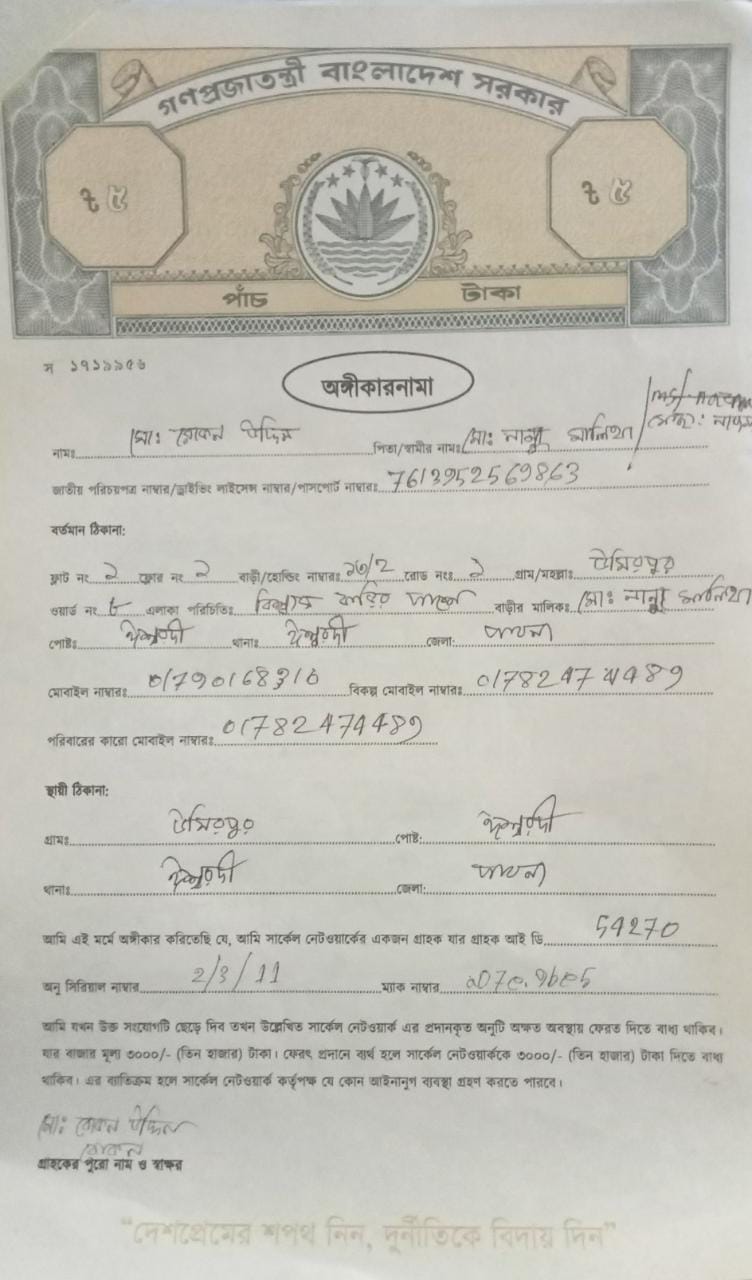 গণপ্রজাতন্ত্রী বাংলাদেশ সরকার
৳ ৫ ৳ ৫
পাঁচ টাকা
অঙ্গীকারনামা
নামঃ মোঃ পিতা/স্বামীর নামঃ মোঃ নান্নু মালিথা
জাতীয় পরিচয়পত্র নাম্বার/ড্রাইভিং লাইসেন্স নাম্বার/পাসপোর্ট নাম্বারঃ 7613952569863
বর্তমান ঠিকানা:
ফ্লাট নং ২ ফ্লোর নং ২ বাড়ী/হোল্ডিং নাম্বারঃ রোড নংঃ ২ গ্রাম/মহল্লাঃ উমিরপুর
ওয়ার্ড নং ৮ এলাকা পরিচিতিঃ বাড়ীর মালিকঃ মোঃ নান্নু মালিথা
পোষ্টঃ ঈশ্বরদী থানাঃ ঈশ্বরদী জেলা: পাবনা
মোবাইল নাম্বারঃ বিকল্প মোবাইল নাম্বারঃ
পরিবারের কারো মোবাইল নাম্বারঃ 01782474489
স্থায়ী ঠিকানা:
গ্রামঃ উমিরপুর পোষ্ট: ঈশ্বরদী
থানাঃ ঈশ্বরদী জেলা: পাবনা
আমি এই মর্মে অঙ্গীকার করিতেছি যে, আমি সার্কেল নেটওয়ার্কের একজন গ্রাহক যার গ্রাহক আই ডি 54270
অনু সিরিয়াল নাম্বার 2/3/11 ম্যাক নাম্বার
আমি যখন উক্ত সংযোগটি ছেড়ে দিব তখন উল্লেখিত সার্কেল নেটওয়ার্ক এর প্রদানকৃত অনুটি অক্ষত অবস্থায় ফেরত দিতে বাধ্য থাকিব।
যার বাজার মূল্য ৩০০০/- (তিন হাজার) টাকা। ফেরৎ প্রদানে ব্যর্থ হলে সার্কেল নেটওয়ার্ককে ৩০০০/- (তিন হাজার) টাকা দিতে বাধ্য
থাকিব। এর ব্যতিক্রম হলে সার্কেল নেটওয়ার্ক কর্তৃপক্ষ যে কোন আইনানুগ ব্যবস্থা গ্রহণ করতে পারবে।
মোঃ
গ্রাহকের পুরো নাম ও স্বাক্ষর
"দেশপ্রেমের শপথ নিন, দুর্নীতিকে বিদায় দিন"